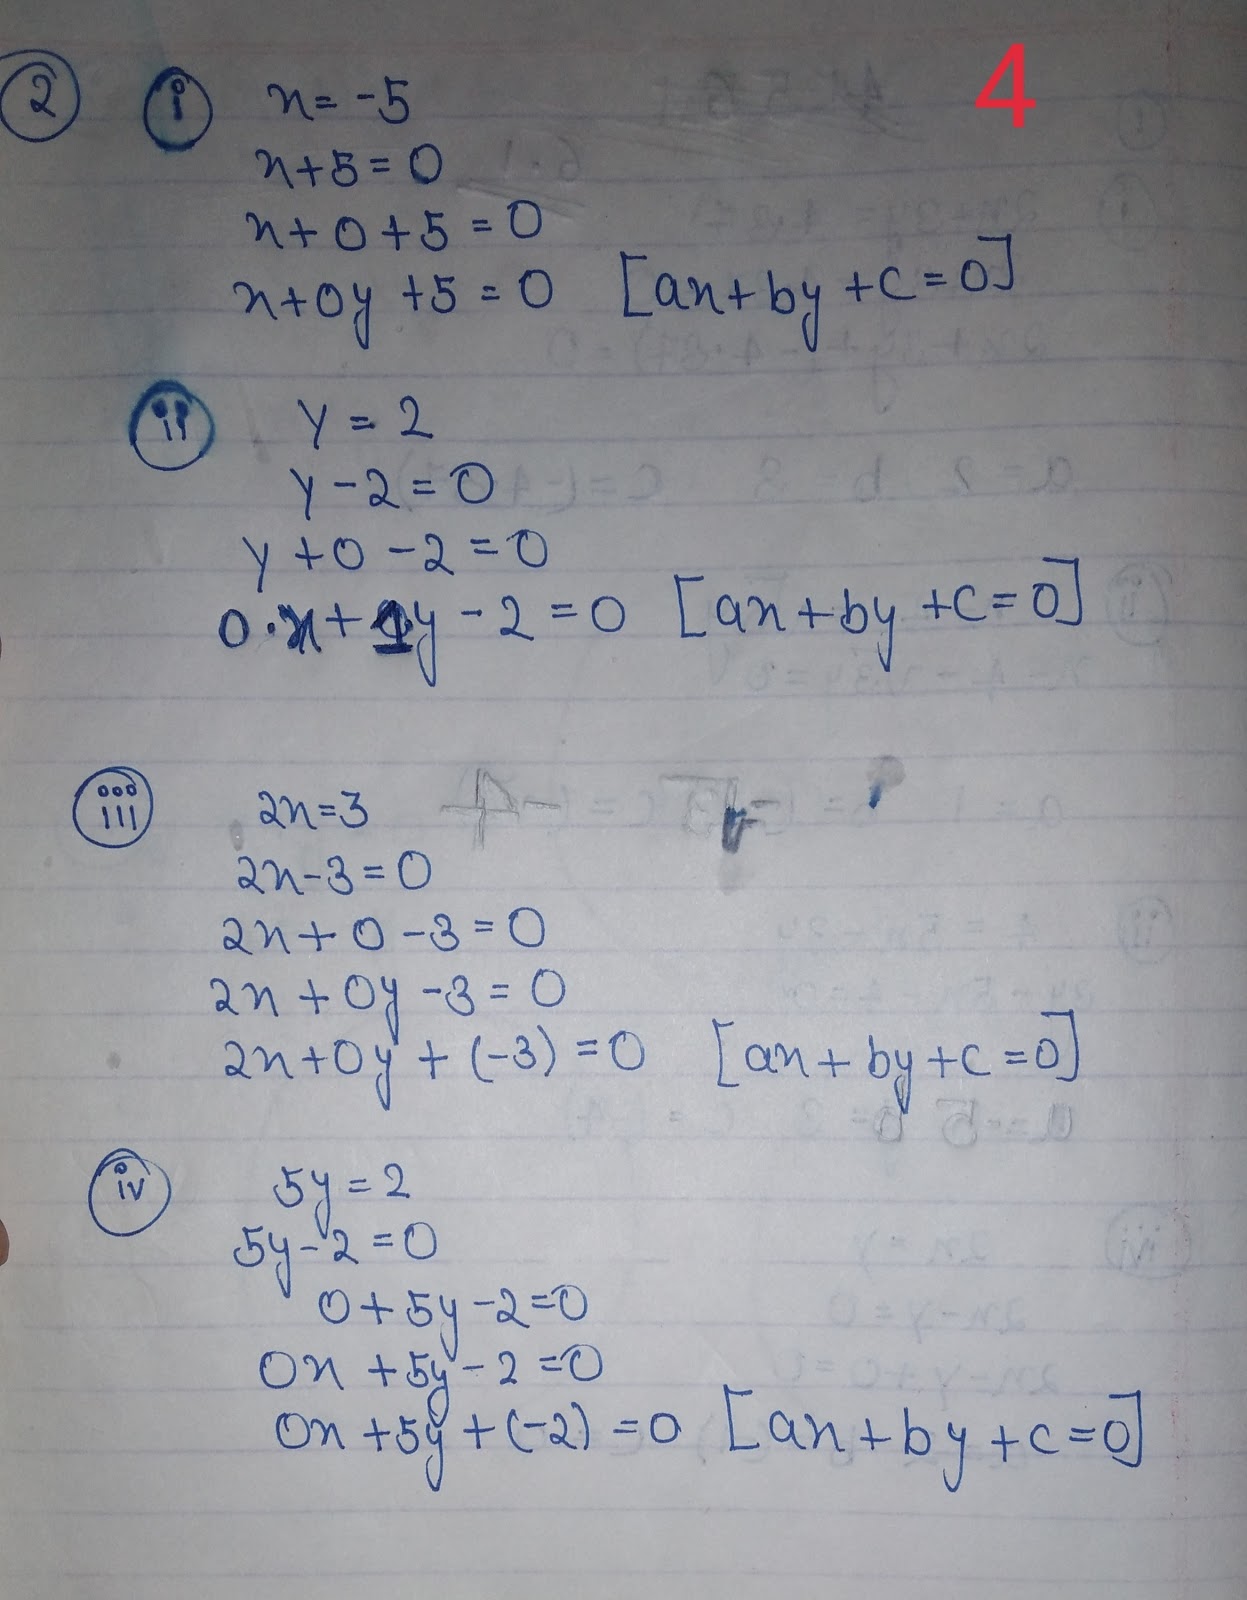 4
② ⓘ x = -5
x + 5 = 0
x + 0 + 5 = 0
x + 0y + 5 = 0 [ax + by + c = 0]
ii y = 2
y - 2 = 0
y + 0 - 2 = 0
0·x + 1y - 2 = 0 [ax + by + c = 0]
iii 2x = 3
2x - 3 = 0
2x + 0 - 3 = 0
2x + 0y - 3 = 0
2x + 0y + (-3) = 0 [ax + by + c = 0]
iv 5y = 2
5y - 2 = 0
0 + 5y - 2 = 0
0x + 5y - 2 = 0
0x + 5y + (-2) = 0 [ax + by + c = 0]